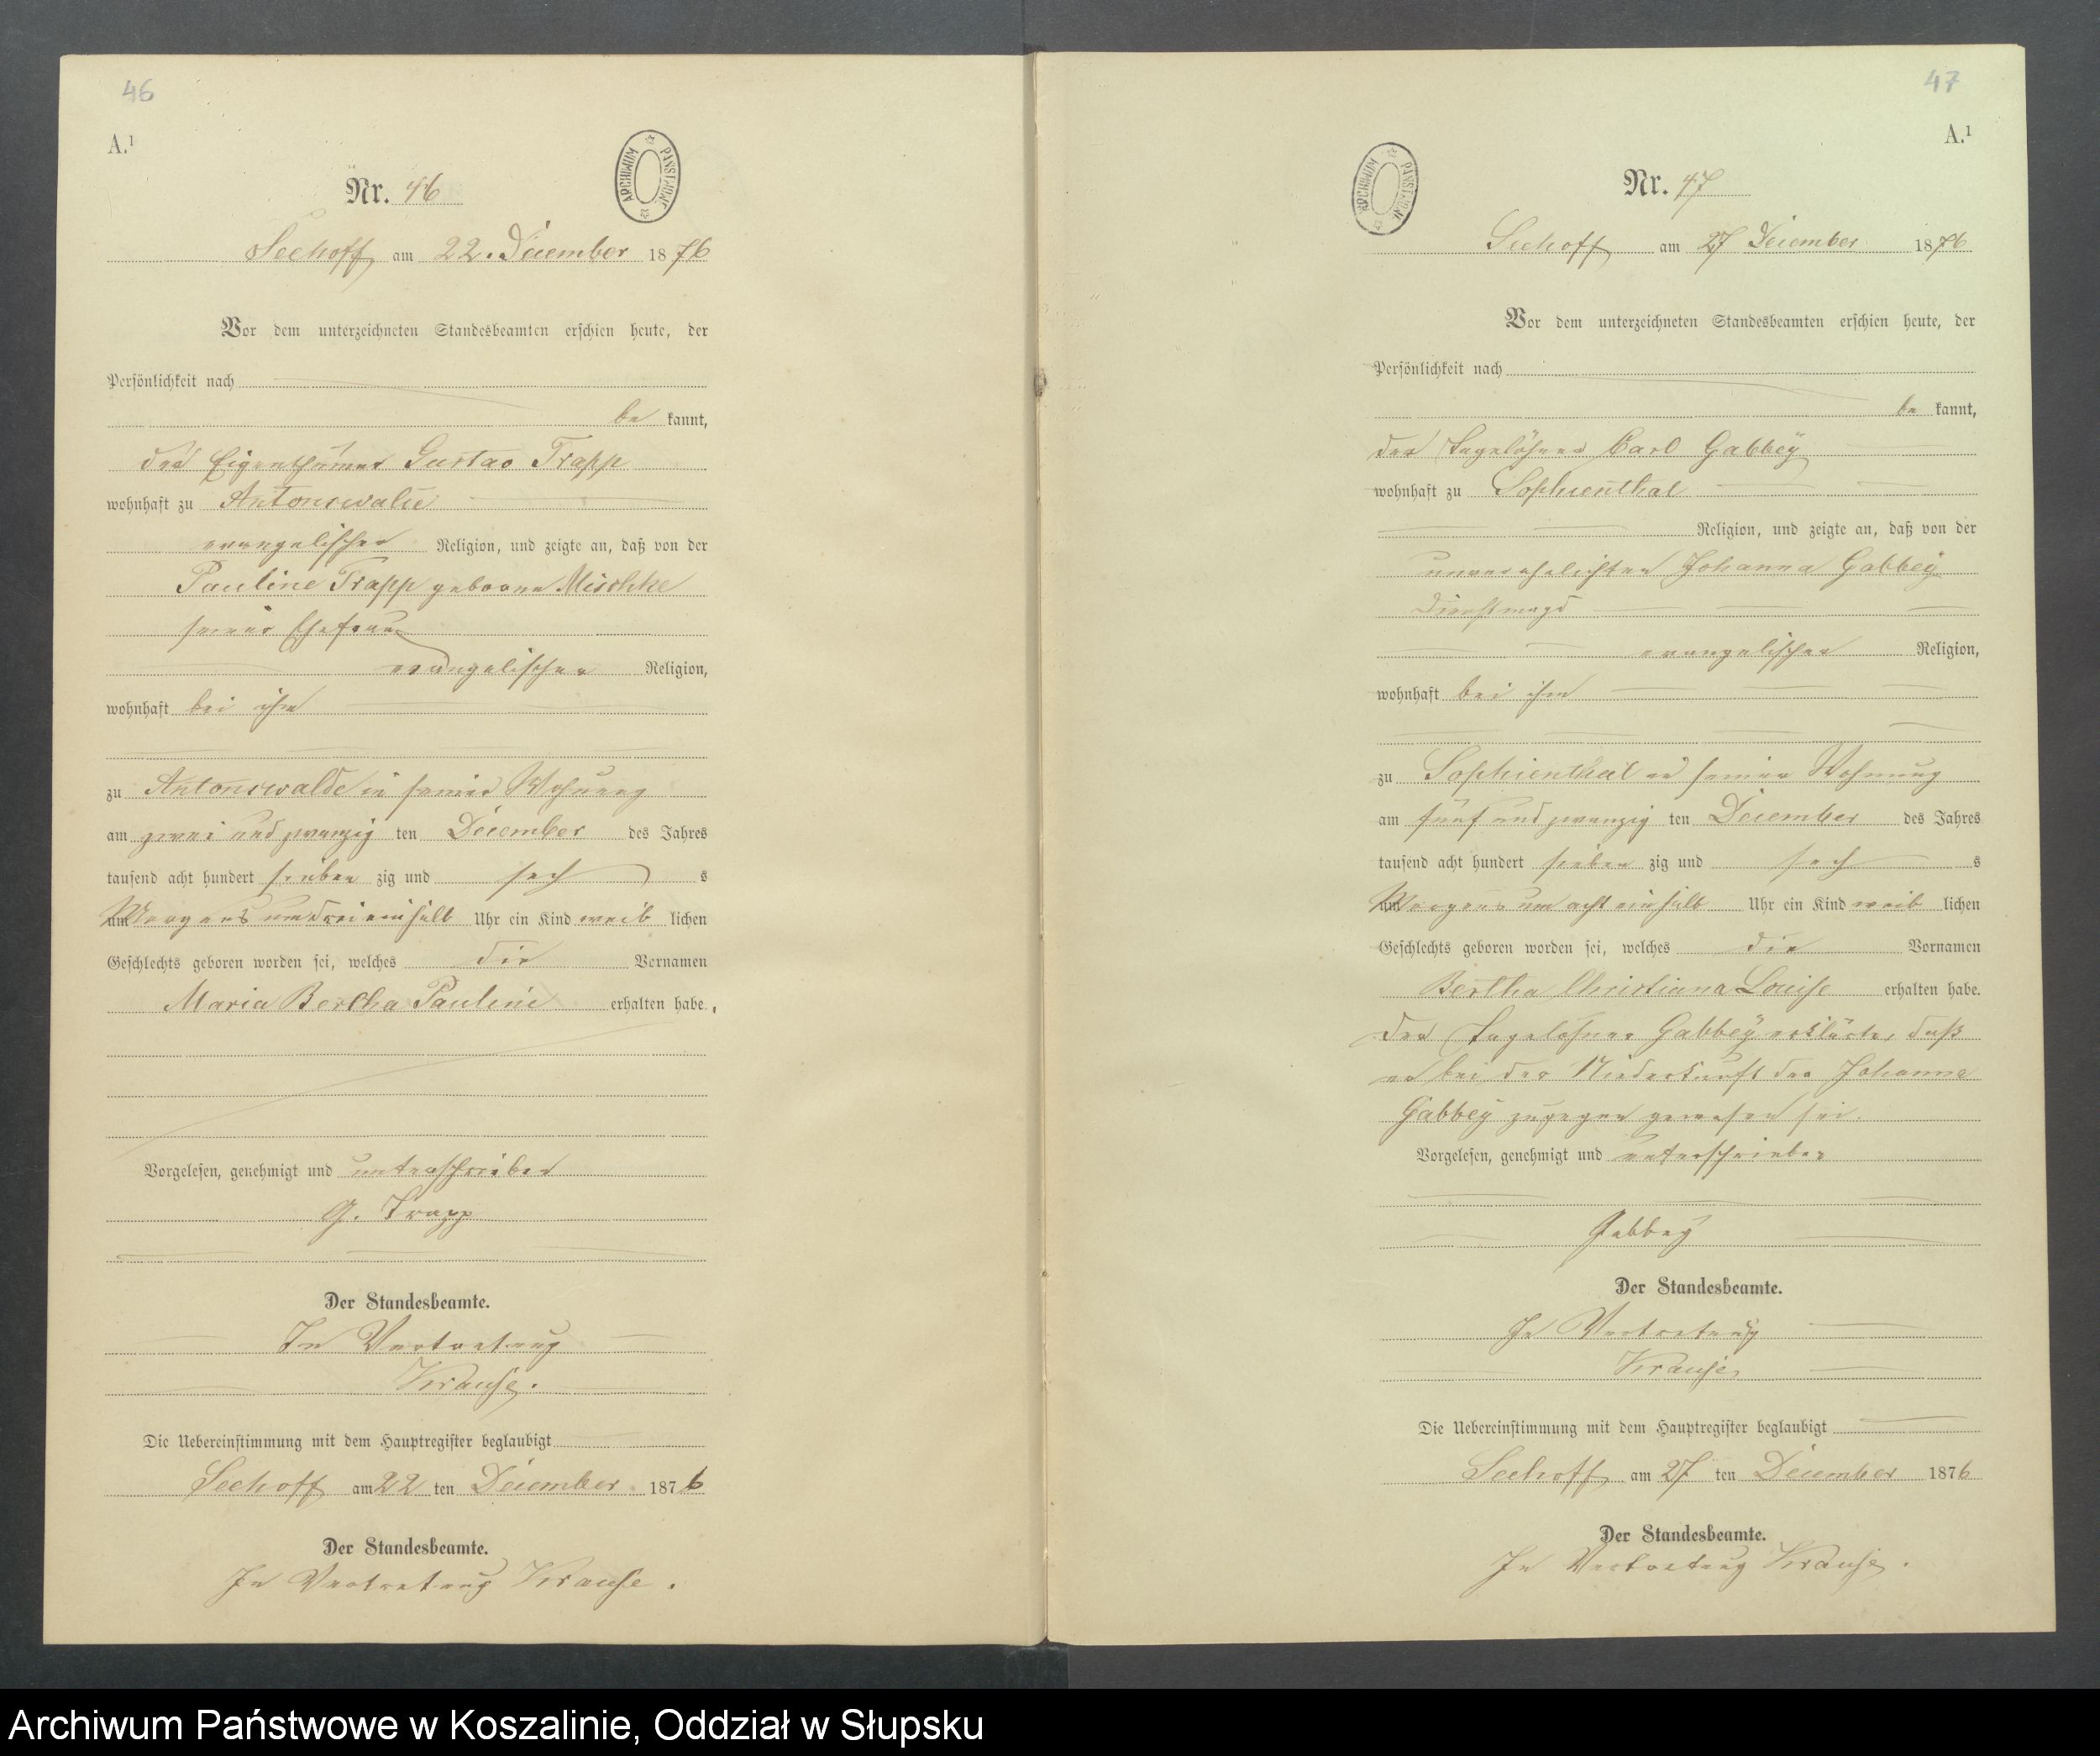 46
A.¹
Nr. 46
ARCHIWUM PAŃSTWOWE
Seehoff am 22. December 1876
Vor dem unterzeichneten Standesbeamten erschien heute, der
Persönlichkeit nach
be kannt,
der Eigenthümer Gustav Trapp
wohnhaft zu Antonswalde
evangelischer Religion, und zeigte an, daß von der
Pauline Trapp geborne Mischke
seiner Ehefrau
evangelischer Religion,
wohnhaft bei ihm
zu Antonswalde in seiner Wohnung
am zwei und zwanzig ten December des Jahres
tausend acht hundert sieben zig und sech s
um Morgens um drei einhalb Uhr ein Kind weib lichen
Geschlechts geboren worden sei, welches die Vornamen
Maria Bertha Pauline erhalten habe.
Vorgelesen, genehmigt und unterschrieben
G. Trapp
Der Standesbeamte.
In Vertretung
Krause.
Die Uebereinstimmung mit dem Hauptregister beglaubigt
Seehoff am 22 ten December 1876
Der Standesbeamte.
In Vertretung Krause.
47
A.¹
Nr. 47
ARCHIWUM PAŃSTWOWE
Seehoff am 27 December 1876
Vor dem unterzeichneten Standesbeamten erschien heute, der
Persönlichkeit nach
be kannt,
der Tagelöhner Carl Gabbey
wohnhaft zu Sophienthal
Religion, und zeigte an, daß von der
unverehelichten Johanna Gabbey
Dienstmagd
evangelischer Religion,
wohnhaft bei ihm
zu Sophienthal in seiner Wohnung
am fünf und zwanzig ten December des Jahres
tausend acht hundert sieben zig und sech s
um Morgens um acht einhalb Uhr ein Kind weib lichen
Geschlechts geboren worden sei, welches die Vornamen
Bertha Christiana Louise erhalten habe.
Der Tagelöhner Gabbey erklärte, daß
er bei der Niederkunft der Johanne
Gabbey zugegen gewesen sei.
Vorgelesen, genehmigt und unterschrieben
Gabbey
Der Standesbeamte.
In Vertretung
Krause
Die Uebereinstimmung mit dem Hauptregister beglaubigt
Seehoff am 27 ten December 1876
Der Standesbeamte.
In Vertretung Krause.
Archiwum Państwowe w Koszalinie, Oddział w Słupsku